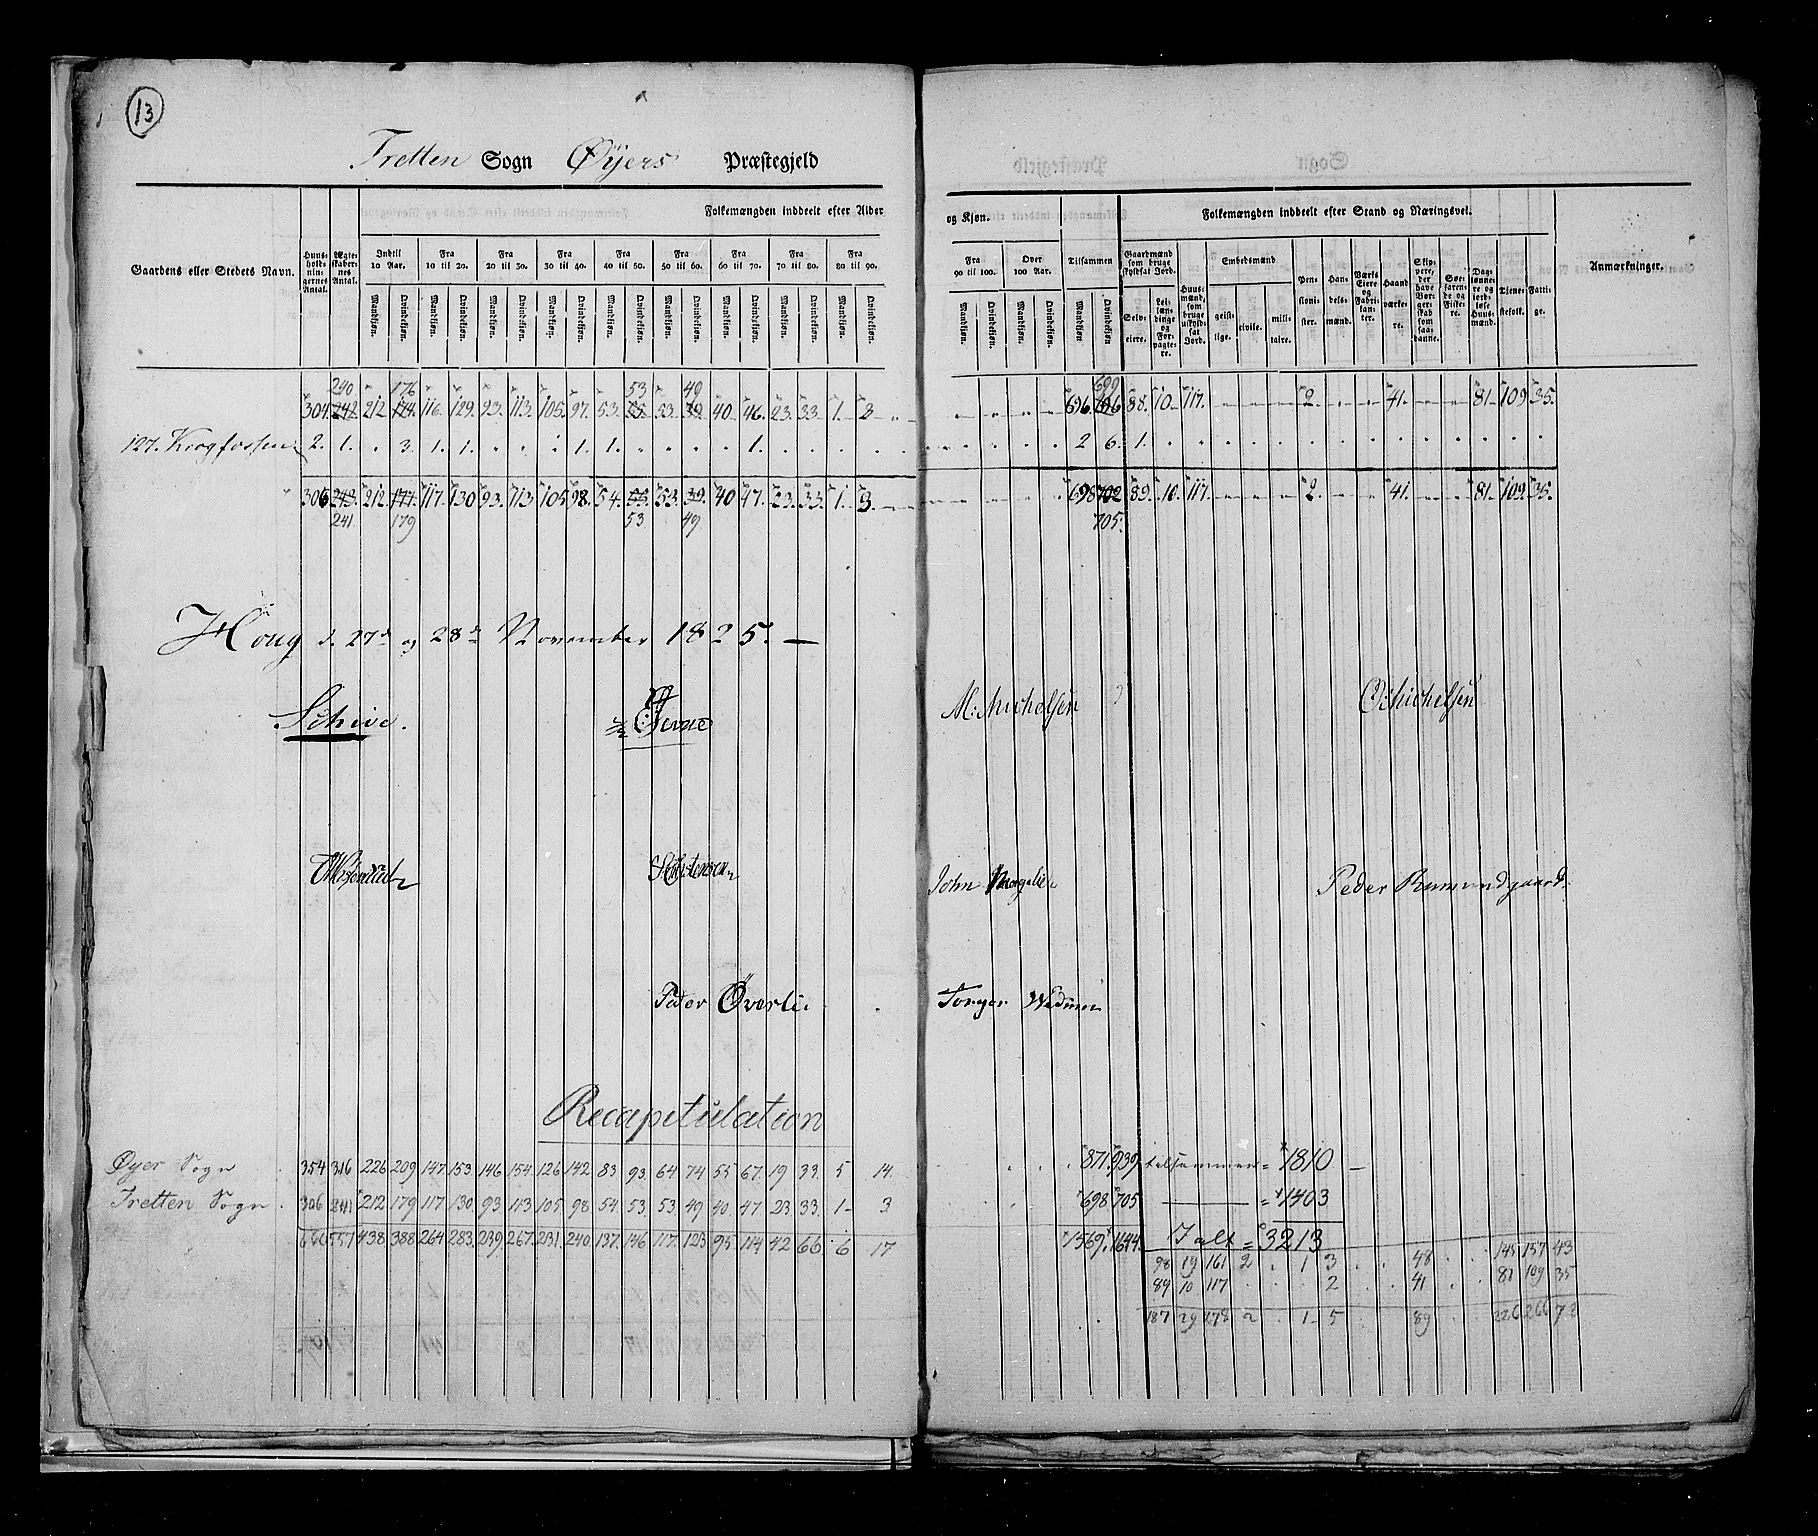 13
Tretten Sogn Øyers Præstegjeld
Folkemængden inddeelt efter Alder og Kjøn. Folkemængden inddeelt efter Stand og Næringsvei.
Gaardens eller Stedets Navn. Huusholdningernes Antal. Ægteskabernes Antal. Indtil 10 Aar. Fra 10 til 20. Fra 20 til 30. Fra 30 til 40. Fra 40 til 50. Fra 50 til 60. Fra 60 til 70. Fra 70 til 80. Fra 80 til 90. Fra 90 til 100. Over 100 Aar. Tilsammen Gaardmænd som bruge skyldsat Jord. Huusmænd, som bruge uskyldsat Jord. Embedsmænd Pensionister. Handelsmænd. Værks Eiere og Fabrikanter. Haandværkere. Skippere, der have Borgerskab som saadanne. Søefarende og Fiskere. Daglønnere og jordløse Huusmænd. Tjenestefolk. Fattige. Anmærkninger.
Mandkjøn. Qvindekjøn. Mandkjøn. Qvindekjøn. Mandkjøn. Qvindekjøn. Mandkjøn. Qvindekjøn. Mandkjøn. Qvindekjøn. Mandkjøn. Qvindekjøn. Mandkjøn. Qvindekjøn. Mandkjøn. Qvindekjøn. Mandkjøn. Qvindekjøn. Mandkjøn. Qvindekjøn. Mandkjøn. Qvindekjøn. Mandkjøn. Qvindekjøn. Selveiere. Leilændinge og Forpagtere. geistlige. civile. militaire.
240 176 53 49 699
304. 242. 212. 174. 116. 129. 93. 113. 105. 97. 53. 55. 53. 39. 40. 46. 23. 33. 1. 3 696. 696 88. 10. 117. 2. 41. 81 109 35.
127. Krogfossen 2. 1. 3. 1. 1. 1. 1. 1. 2 6. 1.
306 243. 212. 177. 117. 130. 93. 113 105 98. 54. 55. 53. 39. 40 47. 23. 33. 1. 3. 698 702 89. 10. 117. 2. 41. 81. 109. 35.
241 179 53 49 705.
Houg d. 27de og 28de November 1825. —
Schive. M: Michelsen O: Michelsen
Peder Rumundgaard.
John
Peder Øverlie Torger
Recapitulation
Øyer Sogn 354 316 226 209 147 153 146 154 126 142 83 93 64 74 55 67 19 33 5 14. 871. 939. tilsammen = 1810 —
Tretten Sogn 306 241 212 179 117 130 93 113 105 98 54. 53. 53 49 40 47 23 33 1 3 698 705 = 1403
660 557 438 388 264 283 239 267 231 240 137. 146 117. 123 95 114 42 66 6 17 1569. 1644. Ialt = 3213
98 19 161 2 . 1 3 48 145 157 43
89 10 117 2 41 81 109 35
187 29 278 2 . 1 5 89 226 266 78